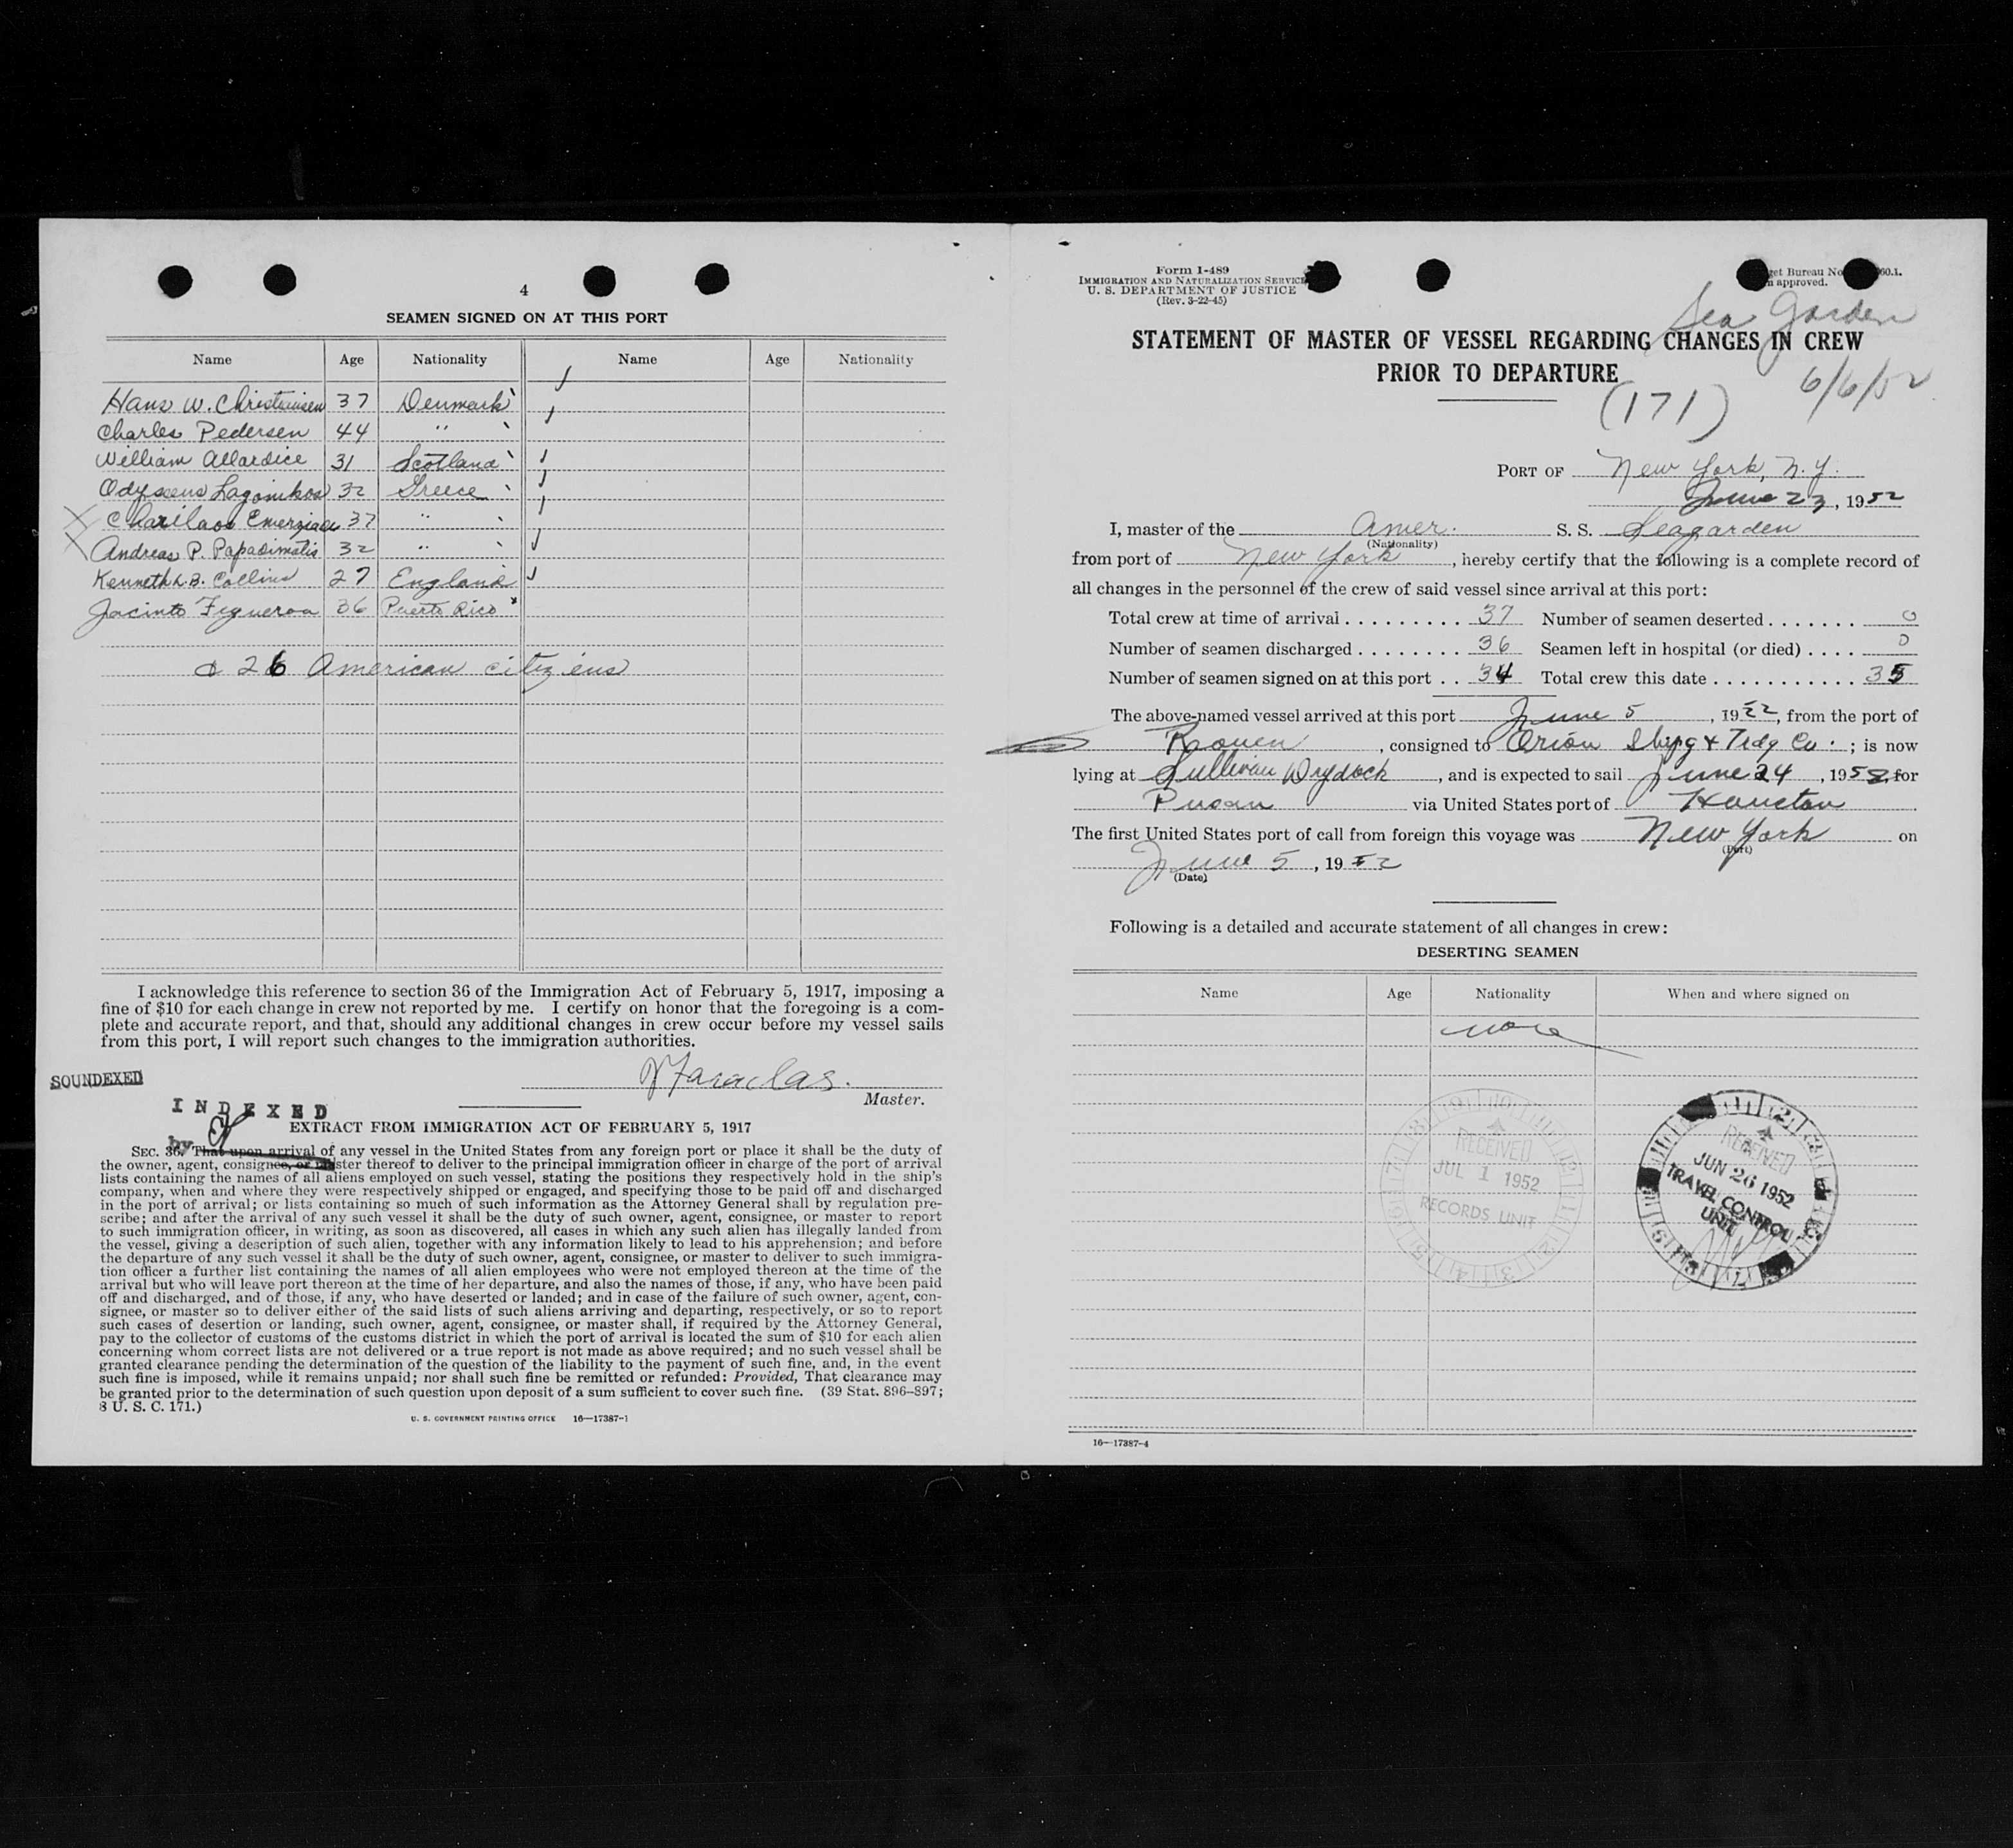 4
SEAMEN SIGNED ON AT THIS PORT
Name Age Nationality Name Age Nationality
Hans W. Christensen 37 Denmark
Charles Pedersen 44 "
William Allardice 31 Scotland
Odysseus Lagonikos 32 Greece
Charilaos 37 "
Andreas P. Papadimatis 32 "
Kenneth L. B. Collins 27 England
Jacinto Figueroa 36 Puerto Rico
& 26 American citizens
I acknowledge this reference to section 36 of the Immigration Act of February 5, 1917, imposing a
fine of $10 for each change in crew not reported by me. I certify on honor that the foregoing is a com-
plete and accurate report, and that, should any additional changes in crew occur before my vessel sails
from this port, I will report such changes to the immigration authorities.
SOUNDEXED
Master.
INDEXED
by
EXTRACT FROM IMMIGRATION ACT OF FEBRUARY 5, 1917
SEC. 36. That upon arrival of any vessel in the United States from any foreign port or place it shall be the duty of
the owner, agent, consignee, or master thereof to deliver to the principal immigration officer in charge of the port of arrival
lists containing the names of all aliens employed on such vessel, stating the positions they respectively hold in the ship's
company, when and where they were respectively shipped or engaged, and specifying those to be paid off and discharged
in the port of arrival; or lists containing so much of such information as the Attorney General shall by regulation pre-
scribe; and after the arrival of any such vessel it shall be the duty of such owner, agent, consignee, or master to report
to such immigration officer, in writing, as soon as discovered, all cases in which any such alien has illegally landed from
the vessel, giving a description of such alien, together with any information likely to lead to his apprehension; and before
the departure of any such vessel it shall be the duty of such owner, agent, consignee, or master to deliver to such immigra-
tion officer a further list containing the names of all alien employees who were not employed thereon at the time of the
arrival but who will leave port thereon at the time of her departure, and also the names of those, if any, who have been paid
off and discharged, and of those, if any, who have deserted or landed; and in case of the failure of such owner, agent, con-
signee, or master so to deliver either of the said lists of such aliens arriving and departing, respectively, or so to report
such cases of desertion or landing, such owner, agent, consignee, or master shall, if required by the Attorney General,
pay to the collector of customs of the customs district in which the port of arrival is located the sum of $10 for each alien
concerning whom correct lists are not delivered or a true report is not made as above required; and no such vessel shall be
granted clearance pending the determination of the question of the liability to the payment of such fine, and, in the event
such fine is imposed, while it remains unpaid; nor shall such fine be remitted or refunded: Provided, That clearance may
be granted prior to the determination of such question upon deposit of a sum sufficient to cover such fine. (39 Stat. 896-897;
8 U. S. C. 171.)
U. S. GOVERNMENT PRINTING OFFICE 16—17387-1
Form I-489
IMMIGRATION AND NATURALIZATION SERVICE
U. S. DEPARTMENT OF JUSTICE
(Rev. 3-22-45)
get Bureau No. 60.1.
approved.
Sea Garden
STATEMENT OF MASTER OF VESSEL REGARDING CHANGES IN CREW
PRIOR TO DEPARTURE
6/6/52
(171)
PORT OF New York, N.Y.
June 23, 1952
I, master of the Amer. S. S. Seagarden
(Nationality)
from port of New York, hereby certify that the following is a complete record of
all changes in the personnel of the crew of said vessel since arrival at this port:
Total crew at time of arrival . . . . . . . . . . 37 Number of seamen deserted . . . . . . . 0
Number of seamen discharged . . . . . . . . 36 Seamen left in hospital (or died) . . . . 0
Number of seamen signed on at this port . . 34 Total crew this date . . . . . . . . . . . 35
The above-named vessel arrived at this port June 5, 1952, from the port of
Rouen, consigned to Orion Shpg & Trdg Co.; is now
lying at Sullivan Drydock, and is expected to sail June 24, 1952, for
Pusan via United States port of Houston
The first United States port of call from foreign this voyage was New York on
(Port)
June 5, 1952
(Date)
Following is a detailed and accurate statement of all changes in crew:
DESERTING SEAMEN
Name Age Nationality When and where signed on
none
RECEIVED
JUL 1 1952
RECORDS UNIT
RECEIVED
JUN 26 1952
TRAVEL CONTROL
UNIT
16—17387-4